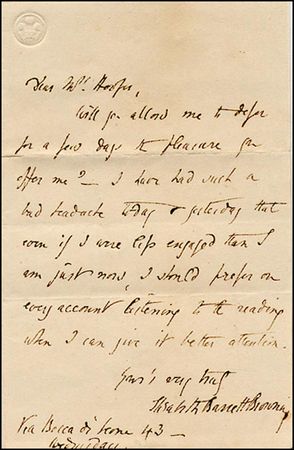 Dear Mrs. Hooper,
Will you allow me to defer
for a few days the pleasure you
offer me? — I have had such a
bad headache today & yesterday that
even if I were less engaged than I
am just now, I should prefer on
every account, listening to the reading
when I can give it better attention.
Yours very truly
Elizabeth Barrett Browning
Via Bocca di Leone 43 —
Wednesday